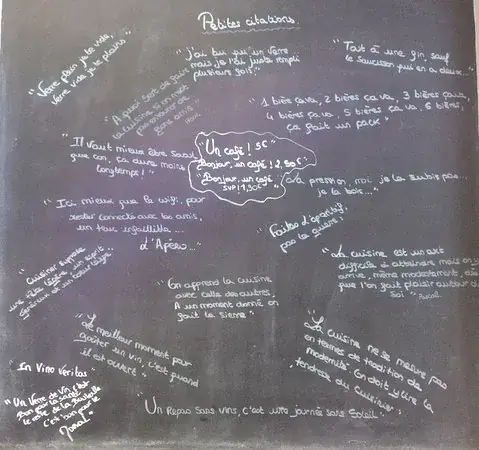 Petites citations
"Verre plein je te vide,
verre vide je te plains"
"j'ai bu qu'un verre
mais je l'ai juste rempli
plusieurs fois."
"Tout à une gin, sauf
le saucisson qui en a deux..."
"A quoi sert de faire
la cuisine si on n'est
pas entouré de
bons amis"
"1 bière ça va, 2 bières ça va, 3 bières ça va,
4 bières ça va, 5 bières ça va, 6 bières,
ça fait un pack"
"Il Vaut mieux être Saoul
que con, ça dure moins
longtemps!"
"Un café! 5€
Bonjour, un café! 2,50€"
"Bonjour, un café
SVP! 1,50€"
"La pression, moi je la subis pas...
je la bois..."
"Ici mieux que le wifi, pour
rester connectés avec tes amis,
un truc infaillible...
d'Apéro..."
Faites l'apéritif,
pas la guerre!
"Cuisiner suppose
une tête légère, un esprit
généreux et un cœur large"
"La cuisine est un art
difficile à atteindre mais on y
arrive, même modestement, dès
que l'on fait plaisir autour de
Soi"
"On apprend la cuisine
avec celle des autres,
A un moment donné on
fait la sienne"
"Le meilleur moment pour
goûter un vin, c'est quand
il est ouvert"
"La Cuisine ne se mesure pas
en termes de tradition ou de
modernité. On doit y lire la
tendresse du Cuisinier"
"In Vino Veritas"
"Un Verre de Vin c'est
Bon pour la santé
le reste de la bouteille
c'est bon pour le
Moral"
"Un Repas Sans vins, c'est une journée sans Soleil"